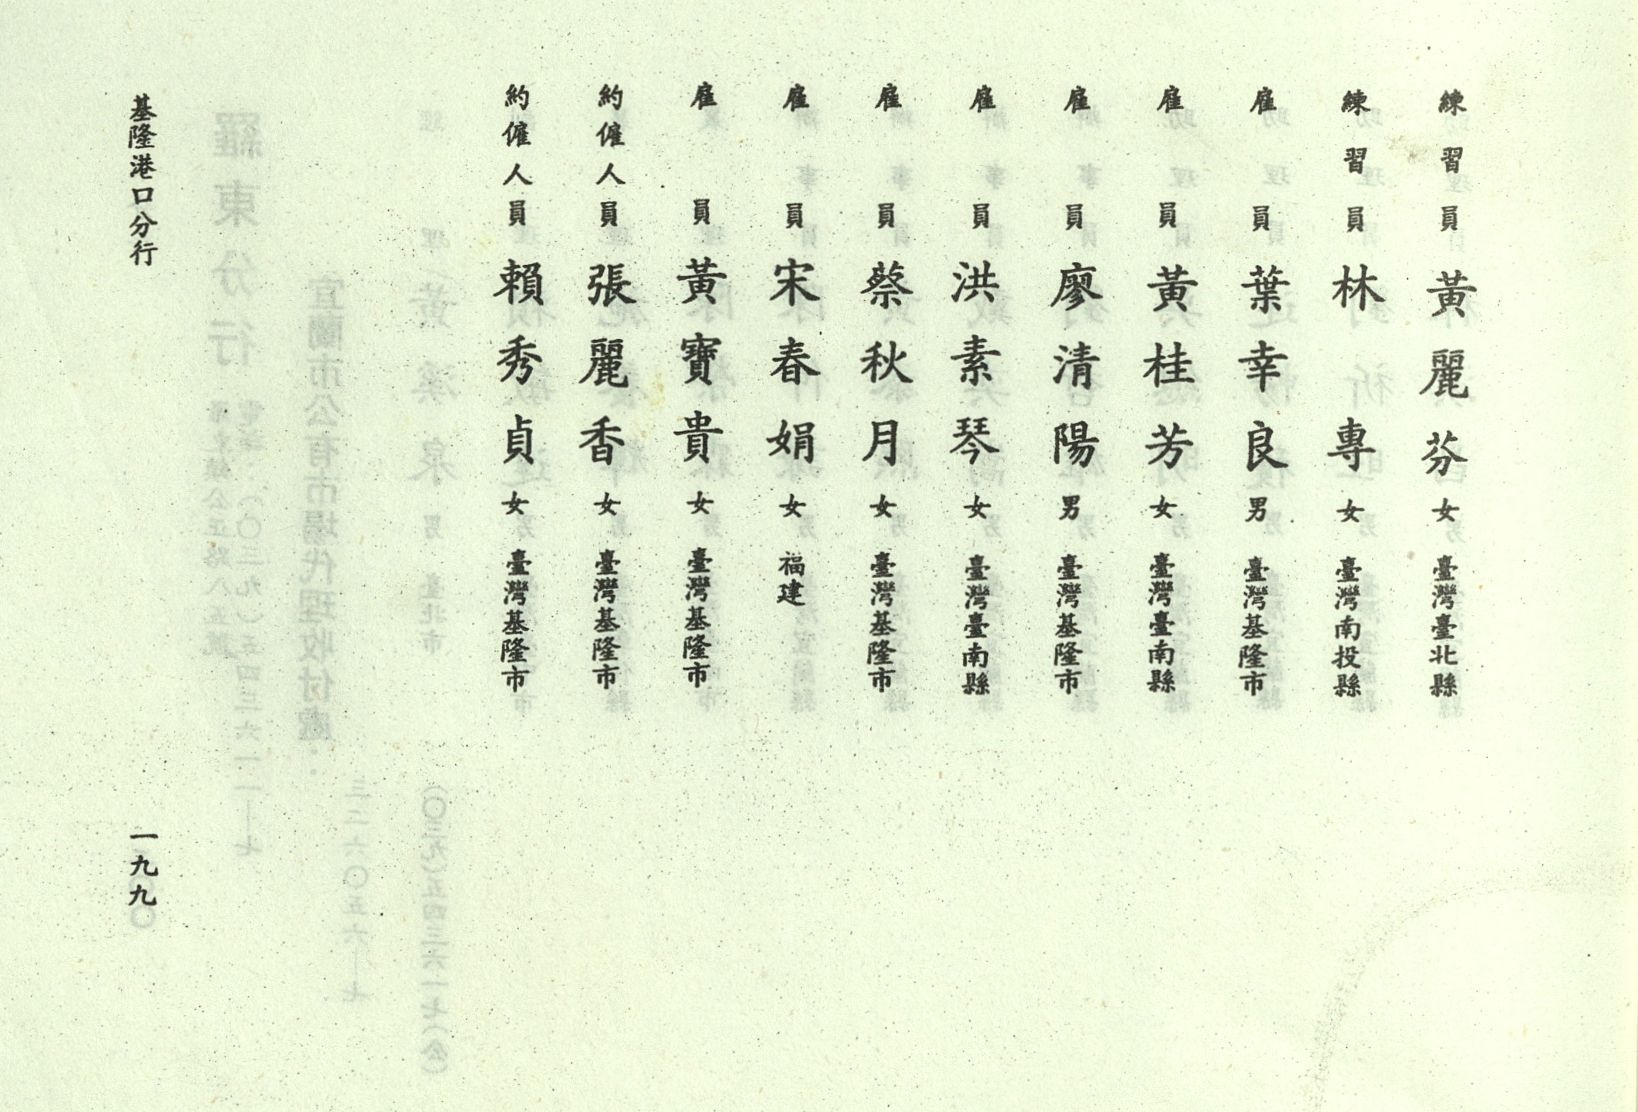 練習員 黃麗芬 女 臺灣臺北縣
練習員 林專 女 臺灣南投縣
雇員 葉幸良 男 臺灣基隆市
雇員 黃桂芳 女 臺灣臺南縣
雇員 廖清陽 男 臺灣基隆市
雇員 洪素琴 女 臺灣臺南縣
雇員 蔡秋月 女 臺灣基隆市
雇員 宋春娟 女 福建
雇員 黃寶貴 女 臺灣基隆市
約僱人員 張麗香 女 臺灣基隆市
約僱人員 賴秀貞 女 臺灣基隆市
基隆港口分行
一九九